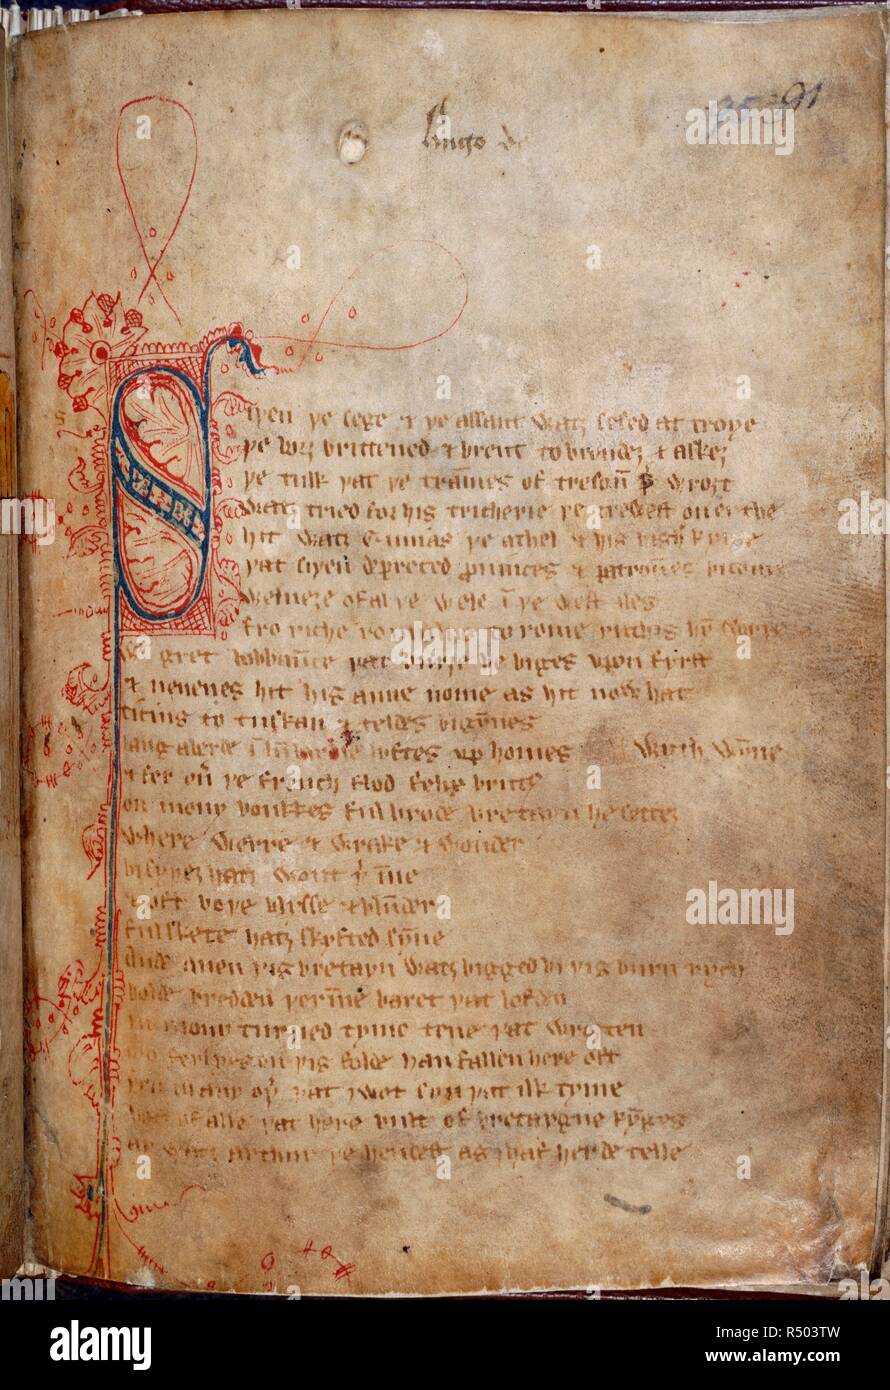 Hugo de
91
Siþen þe sege & þe assaut watz sesed at troye
þe borȝ brittened & brent to brondeȝ & askez
þe tulk þat þe trāmes of tresoū þ̉ wroȝt
watz tried for his tricherie þe trewest on erthe
hit watz Ennias þe athel & his highe kynde
þat siþen depreced prouinces & patrounes bicome
welneȝe of al þe wele ī þe west iles
fro riche romulus to rome ricchis hȳ swyþe
gret bobbaūce þat burȝe he biges vpon fyrst
& neuenes hit his aune nome as hit now hat
ticius to tuskan & teldes bigȳnes
langaberde ī lumbardie lyftes vp homes wyth wȳne
& fer oủ þe french flod felix brutus
on mony bonkkes ful brode bretayn he settez
where werre & wrake & wonder
bi syþez hatz wont þ̉īne
& oft boþe blysse & blunder
ful skete hatz skyfted sȳne
Ande quen þis bretayn watz bigged bi þis burn rych
bolde bredden þerīne baret þat lofden
in mony turned tyme tene þat wroȝten
mo ferlyes on þis folde han fallen here oft
þen in any oþ̉ þat I wot syn þat ilk tyme
bot of alle þat here bult of bretaygne kȳges
ay watz arthur þe hendest as I haf herde telle
alamy
alamy
alamy
alamy
Image ID: R503TW
www.alamy.com